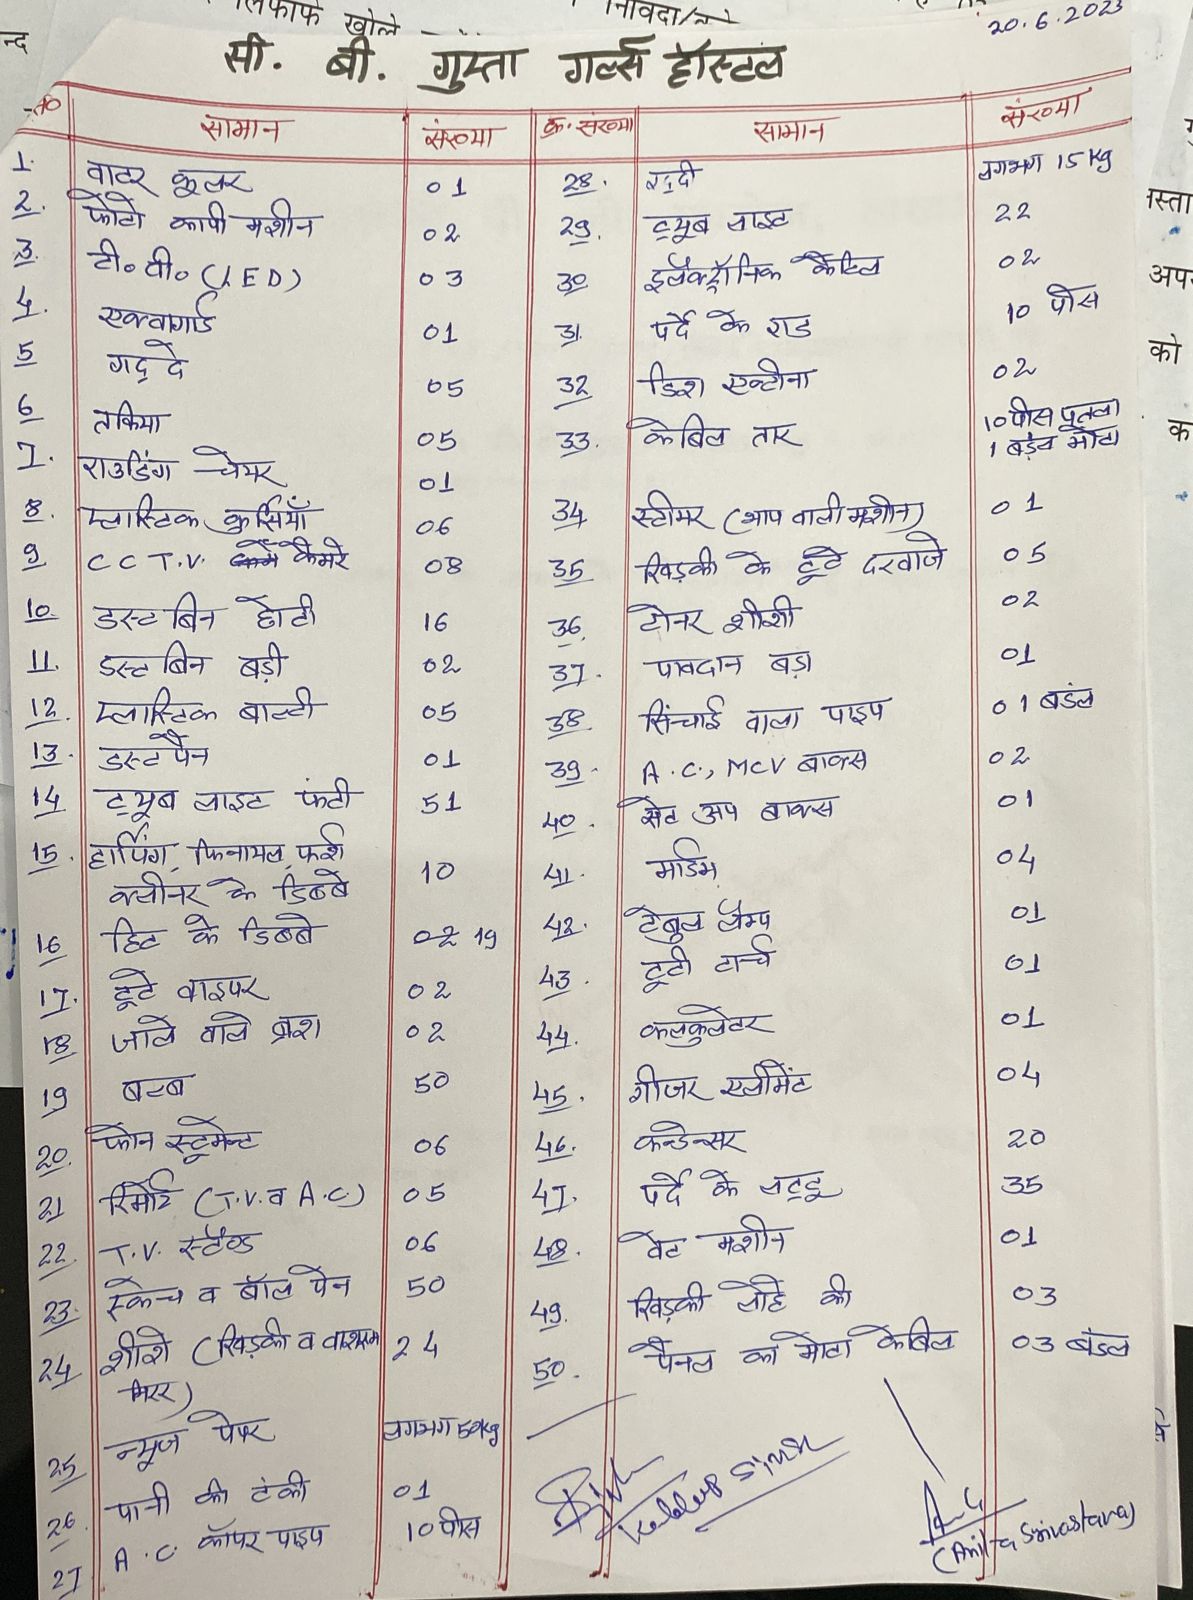 लिफाफे खोले
निविदा/
न्द
20.6.2023
सी. बी. गुप्ता गर्ल्स हॉस्टल
सामान संख्या क्र. संख्या सामान संख्या
1. वाटर कूलर 01
2. फोटो कापी मशीन 02
3. टी० वी० (LED) 03
4. एक्वागार्ड 01
5 गद्दे 05
6 तकिया 05
7. राउडिंग चेयर 01
8. प्लास्टिक कुर्सियाँ 06
9 CCT.V. कैमरे 08
10. डस्टबिन छोटी 16
11. डस्टबिन बड़ी 02
12. प्लास्टिक बाल्टी 05
13. डस्टपैन 01
14 ट्यूब लाइट फंटी 51
15. हार्पिंग, फिनायल, फर्श
क्लीनर के डिब्बे 10
16 हिट के डिब्बे 02 19
17. टूटे वाइपर 02
18 जाले वाले ब्रश 02
19 बल्ब 50
20. फोन स्टूमेन्ट 06
21 रिमोट (T.V. व A.C) 05
22. T.V. स्टैण्ड 06
23. स्केच व बॉल पेन 50
24 शीशे (खिड़की व वाशरूम 24
मिरर)
25 न्यूज पेपर लगभग 50kg
26. पानी की टंकी 01
27 A.C. कॉपर पाइप 10 पीस
28. रद्दी लगभग 15 Kg
29. ट्यूब लाइट 22
30 इलैक्ट्रॉनिक कैटिल 02
31. पर्दे के राड 10 पीस
32 डिश एन्टीना 02
33. केबिल तार 10 पीस पतला
1 बडंल मोटा
34 स्टीमर (भाप वाली मशीन) 01
35 खिड़की के टूटे दरवाजे 05
36. टोनर शीशी 02
37. पावदान बड़ा 01
38. सिंचाई वाला पाइप 01 बडंल
39. A.C., MCV बाक्स 02
40. सेट अप बाक्स 01
41. मॉडम 04
42. टेबुल लैम्प 01
43. टूटी टार्च 01
44. कलकुलेटर 01
45. गीजर एलीमेंट 04
46. कन्डेन्सर 20
47. पर्दे के लट्टू 35
48. वेट मशीन 01
49. खिड़की लोहे की 03
50. पैनल का मोटा केबिल 03 बंडल
Kuldeep Singh
(Anita Srivastava)
स्ता
अप
को
क